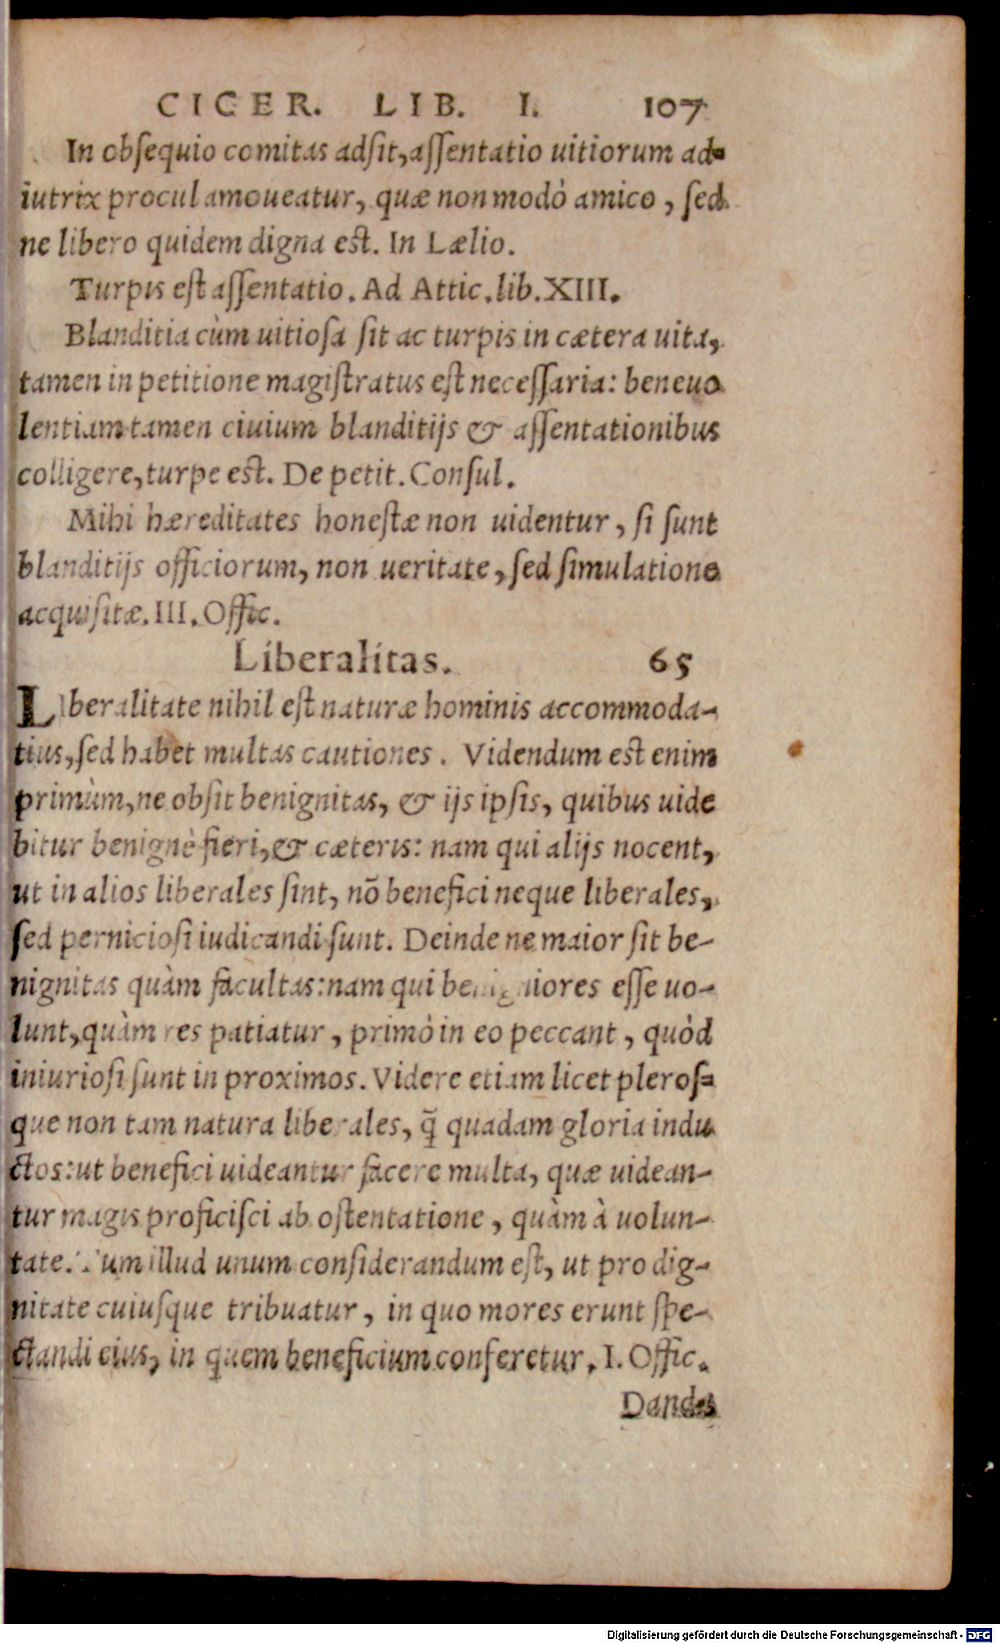 CICER. LIB. I. 107
In obsequio comitas adsit, assentatio uitiorum ad-
iutrix procul amoueatur, quæ non modò amico, sed
ne libero quidem digna est. In Lælio.
Turpis est assentatio. Ad Attic. lib. XIII.
Blanditia cùm uitiosa sit ac turpis in cætera uita,
tamen in petitione magistratus est necessaria: beneuo
lentiam tamen ciuium blanditijs & assentationibus
colligere, turpe est. De petit. Consul.
Mihi hæreditates honestæ non uidentur, si sunt
blanditijs officiorum, non ueritate, sed simulatione
acquisitæ. III. Offic.
Liberalitas. 65
Liberalitate nihil est naturæ hominis accommoda-
tius, sed habet multas cautiones. Videndum est enim
primùm, ne obsit benignitas, & ijs ipsis, quibus uide
bitur benignè fieri, & cæteris: nam qui alijs nocent,
ut in alios liberales sint, nō benefici neque liberales,
sed perniciosi iudicandi sunt. Deinde ne maior sit be-
nignitas quàm facultas: nam qui benigniores esse uo-
lunt, quàm res patiatur, primò in eo peccant, quòd
iniuriosi sunt in proximos. Videre etiam licet pleros-
que non tam natura liberales, q̃ quadam gloria indu
ctos: ut benefici uideantur facere multa, quæ uidean-
tur magis proficisci ab ostentatione, quàm à uolun-
tate. Tum illud unum considerandum est, ut pro dig-
nitate cuiusque tribuatur, in quo mores erunt spe-
ctandi eius, in quem beneficium conferetur. I. Offic.
Dandes
Digitalisierung gefördert durch die Deutsche Forschungsgemeinschaft - DFG